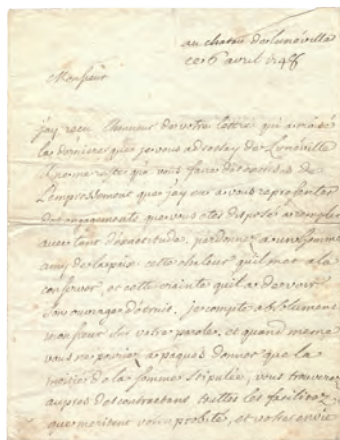 au chateau de lunéville
ce 6 avril 1748
Monsieur
jay reçu l'honneur de votre lettre qui a croisé
la derniere que je vous adressay de Lunéville
que vous faites
L'empressement que jay eu a vous representer
des engagements que vous etes disposé a remplir
avec tant d'exactitude. pardonnez a un homme
amy de la paix cette chaleur qu'il met a la
conserver, et cette crainte qu'il a de voir
son ouvrage détruit. je compte absolument
monsieur sur votre parole, et quand meme
vous ne pouriez a paques donner que la
moitié de la somme stipulée, vous trouverez
aupres des contractans touttes les facilitez
que meritent votre probité, et votre envie